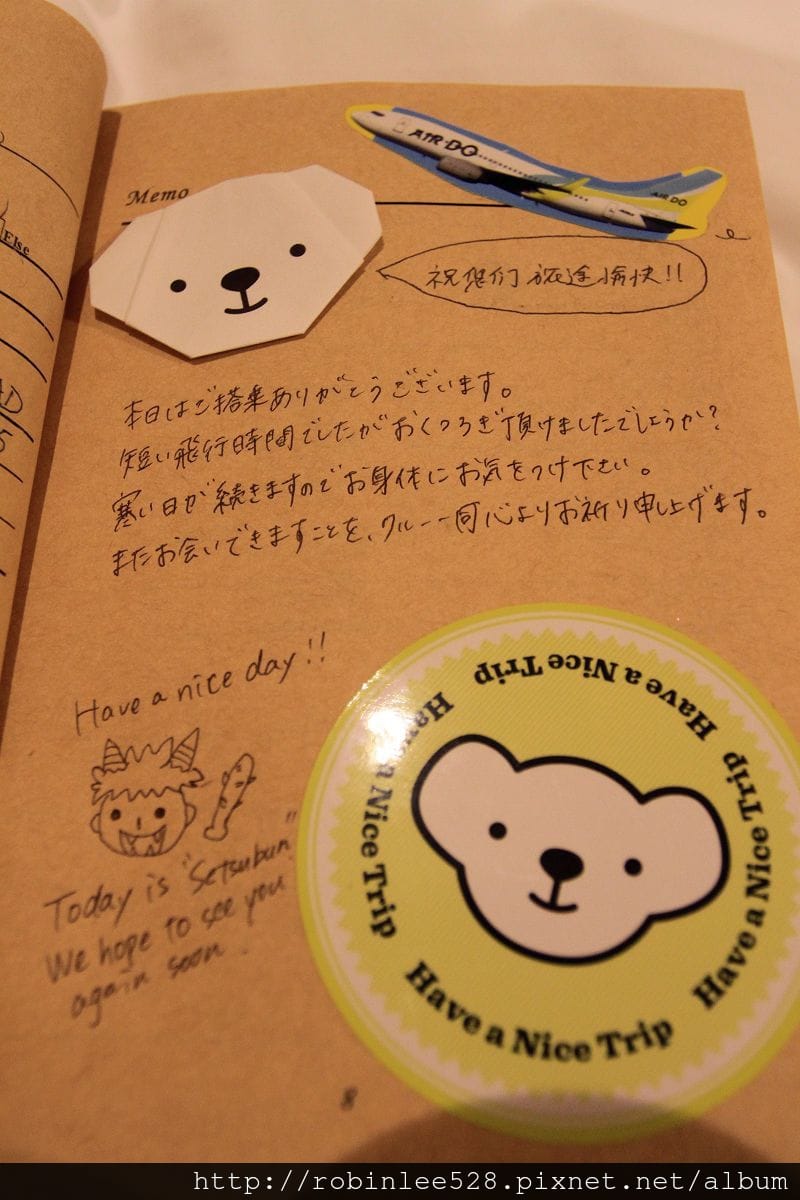 Else
AD
Memo
AIR DO
AIR DO
祝您们 旅途愉快!!
本日はご搭乗ありがとうございます。
短い飛行時間でしたがおくつろぎ頂けましたでしょうか?
寒い日が続きますのでお身体にお気をつけ下さい。
またお会いできますことを、クルー一同心よりお祈り申し上げます。
Have a nice day!!
Today is "Setsubun"
We hope to see you
again soon.
Have a Nice Trip
Have a Nice Trip
Have a Nice Trip
Have a Nice Trip
Have a Nice Trip
8
http://robinlee528.pixnet.net/album